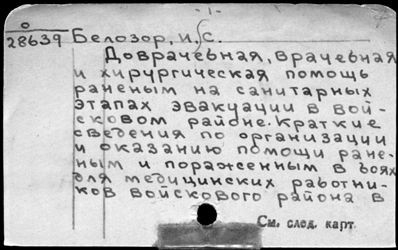 - 1 -
0
28639 Белозор, И. С.
Доврачебная, врачебная
и хирургическая помощь
раненым на санитарных
этапах эвакуации в вой-
сковом районе. Краткие
сведения по организации
и оказанию помощи ране-
ным и пораженным в боях
для медицинских работни-
ков войскового района в
См. след. карт